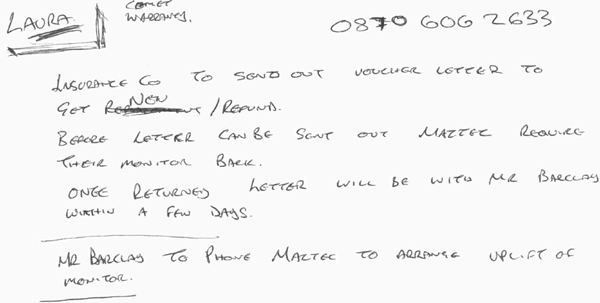 LAURA.
COMET
WARRANTY.
0870 606 2633
INSURANCE CO TO SEND OUT VOUCHER LETTER TO
GET NEW /REFUND.
BEFORE LETTER CAN BE SENT OUT MAZTEC REQUIRE
THEIR MONITOR BACK.
ONCE RETURNED LETTER WILL BE WITH MR BARCLAY
WITHIN A FEW DAYS.
MR BARCLAY TO PHONE MAZTEC TO ARRANGE UPLIFT OF
MONITOR.